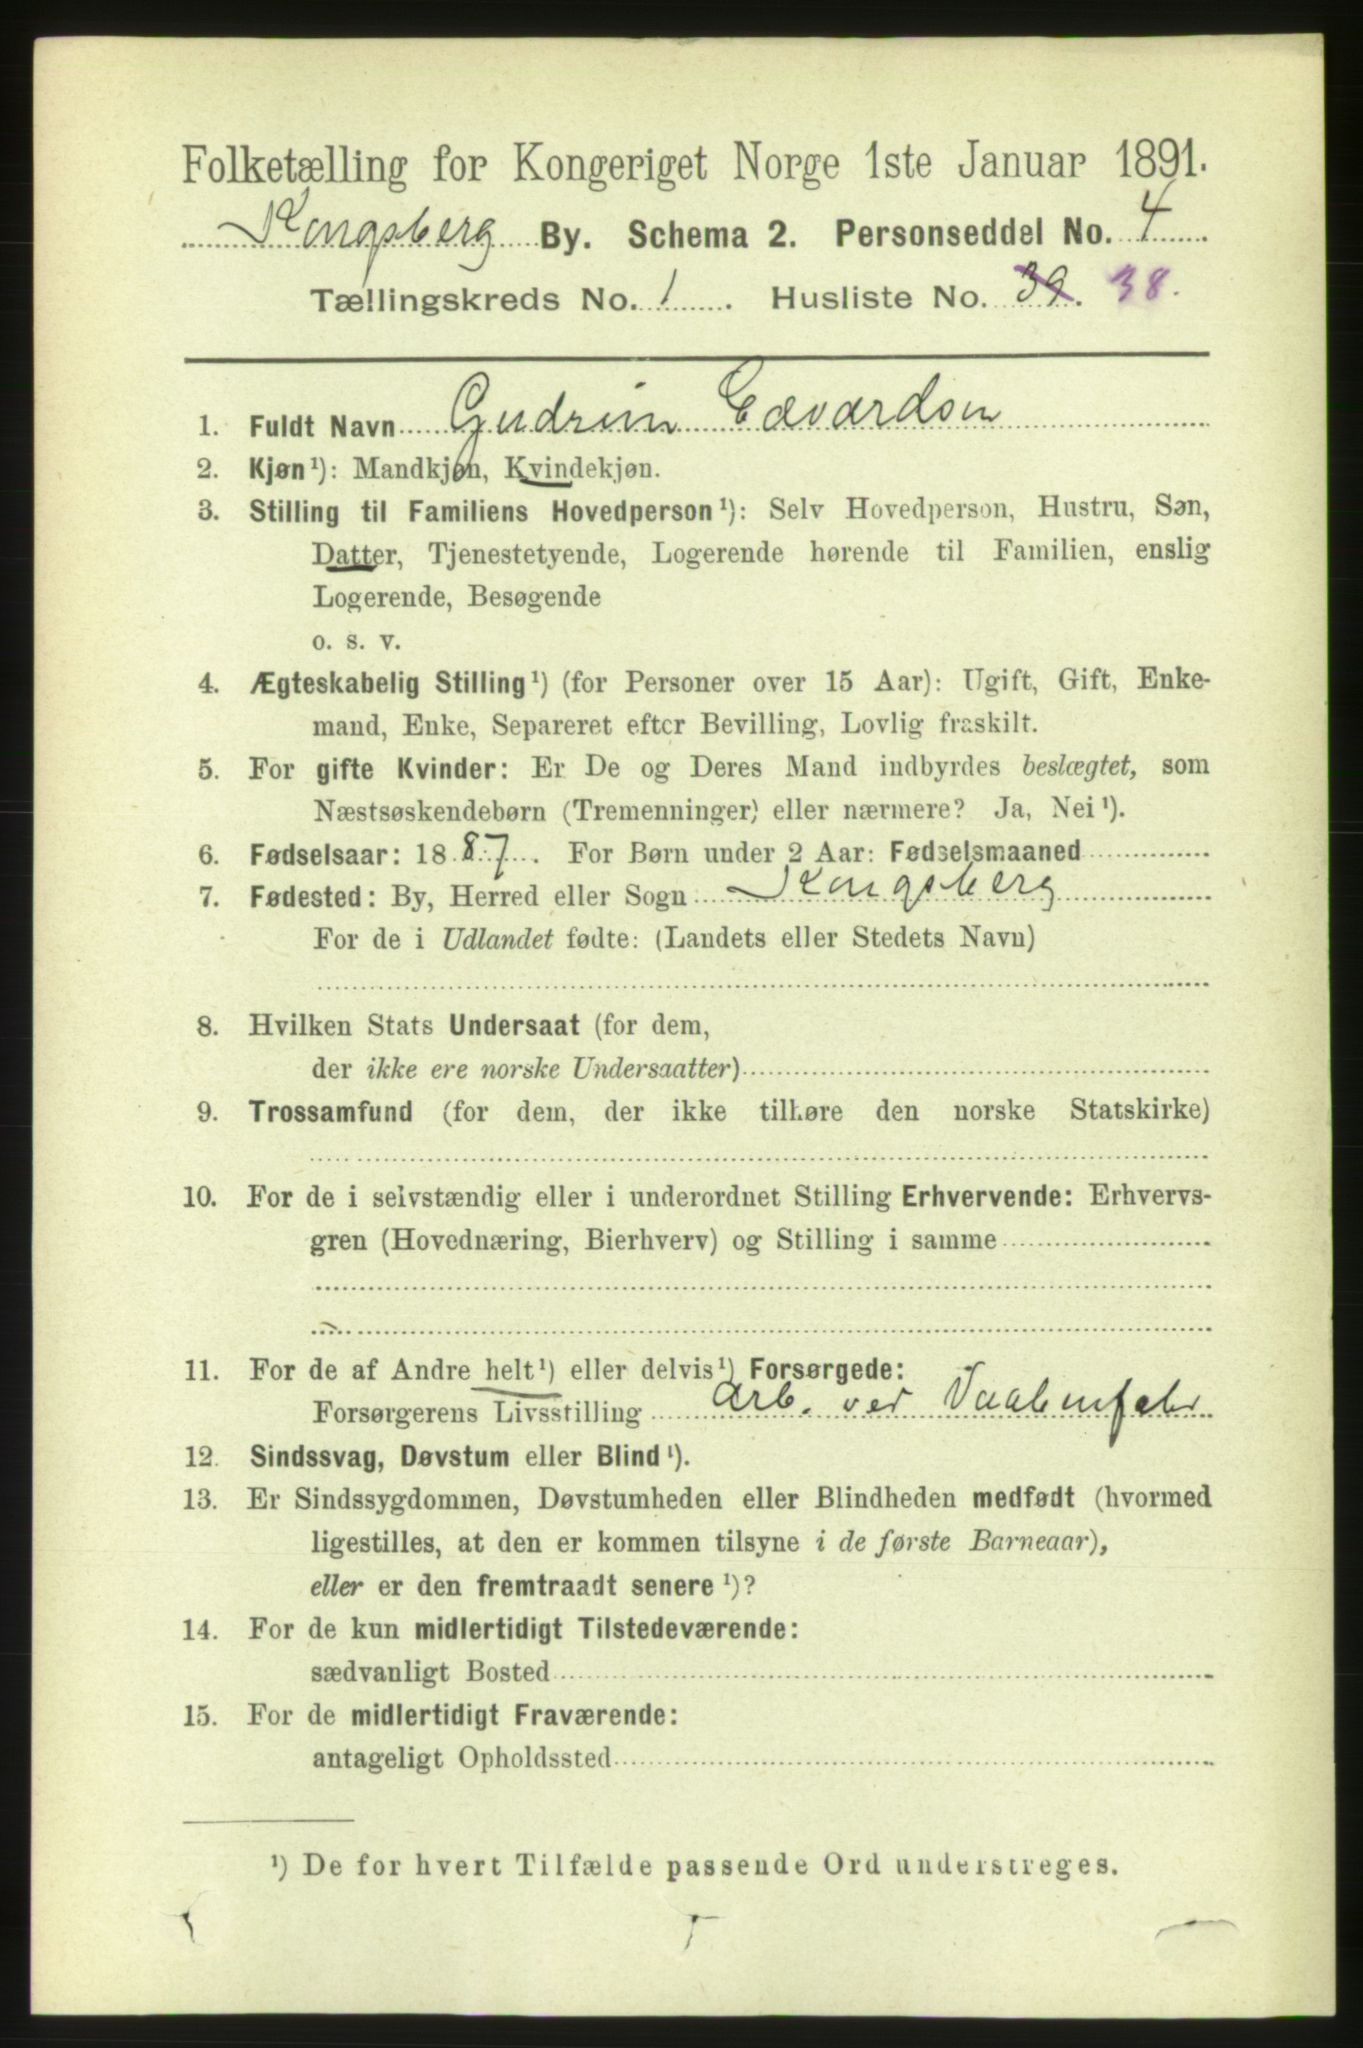 Folketælling for Kongeriget Norge 1ste Januar 1891.
Kongsberg By. Schema 2. Personseddel No. 4
Tællingskreds No. 1. Husliste No. 39. 38.
1. Fuldt Navn Gudrun Edvardsen
2. Kjøn¹): Mandkjøn, Kvindekjøn.
3. Stilling til Familiens Hovedperson¹): Selv Hovedperson, Hustru, Søn,
Datter, Tjenestetyende, Logerende hørende til Familien, enslig
Logerende, Besøgende
o. s. v.
4. Ægteskabelig Stilling¹) (for Personer over 15 Aar): Ugift, Gift, Enke-
mand, Enke, Separeret efter Bevilling, Lovlig fraskilt.
5. For gifte Kvinder: Er De og Deres Mand indbyrdes beslægtet, som
Næstsøskendebørn (Tremenninger) eller nærmere? Ja, Nei¹).
6. Fødselsaar: 1887. For Børn under 2 Aar: Fødselsmaaned
7. Fødested: By, Herred eller Sogn Kongsberg
For de i Udlandet fødte: (Landets eller Stedets Navn)
8. Hvilken Stats Undersaat (for dem,
der ikke ere norske Undersaatter)
9. Trossamfund (for dem, der ikke tilhøre den norske Statskirke)
10. For de i selvstændig eller i underordnet Stilling Erhvervende: Erhvervs-
gren (Hovednæring, Bierhverv) og Stilling i samme
11. For de af Andre helt¹) eller delvis¹) Forsørgede:
Forsørgerens Livsstilling Arb. ved Vaabenfabr
12. Sindssvag, Døvstum eller Blind¹).
13. Er Sindssygdommen, Døvstumheden eller Blindheden medfødt (hvormed
ligestilles, at den er kommen tilsyne i de første Barneaar),
eller er den fremtraadt senere¹)?
14. For de kun midlertidigt Tilstedeværende:
sædvanligt Bosted
15. For de midlertidigt Fraværende:
antageligt Opholdssted
¹) De for hvert Tilfælde passende Ord understreges.